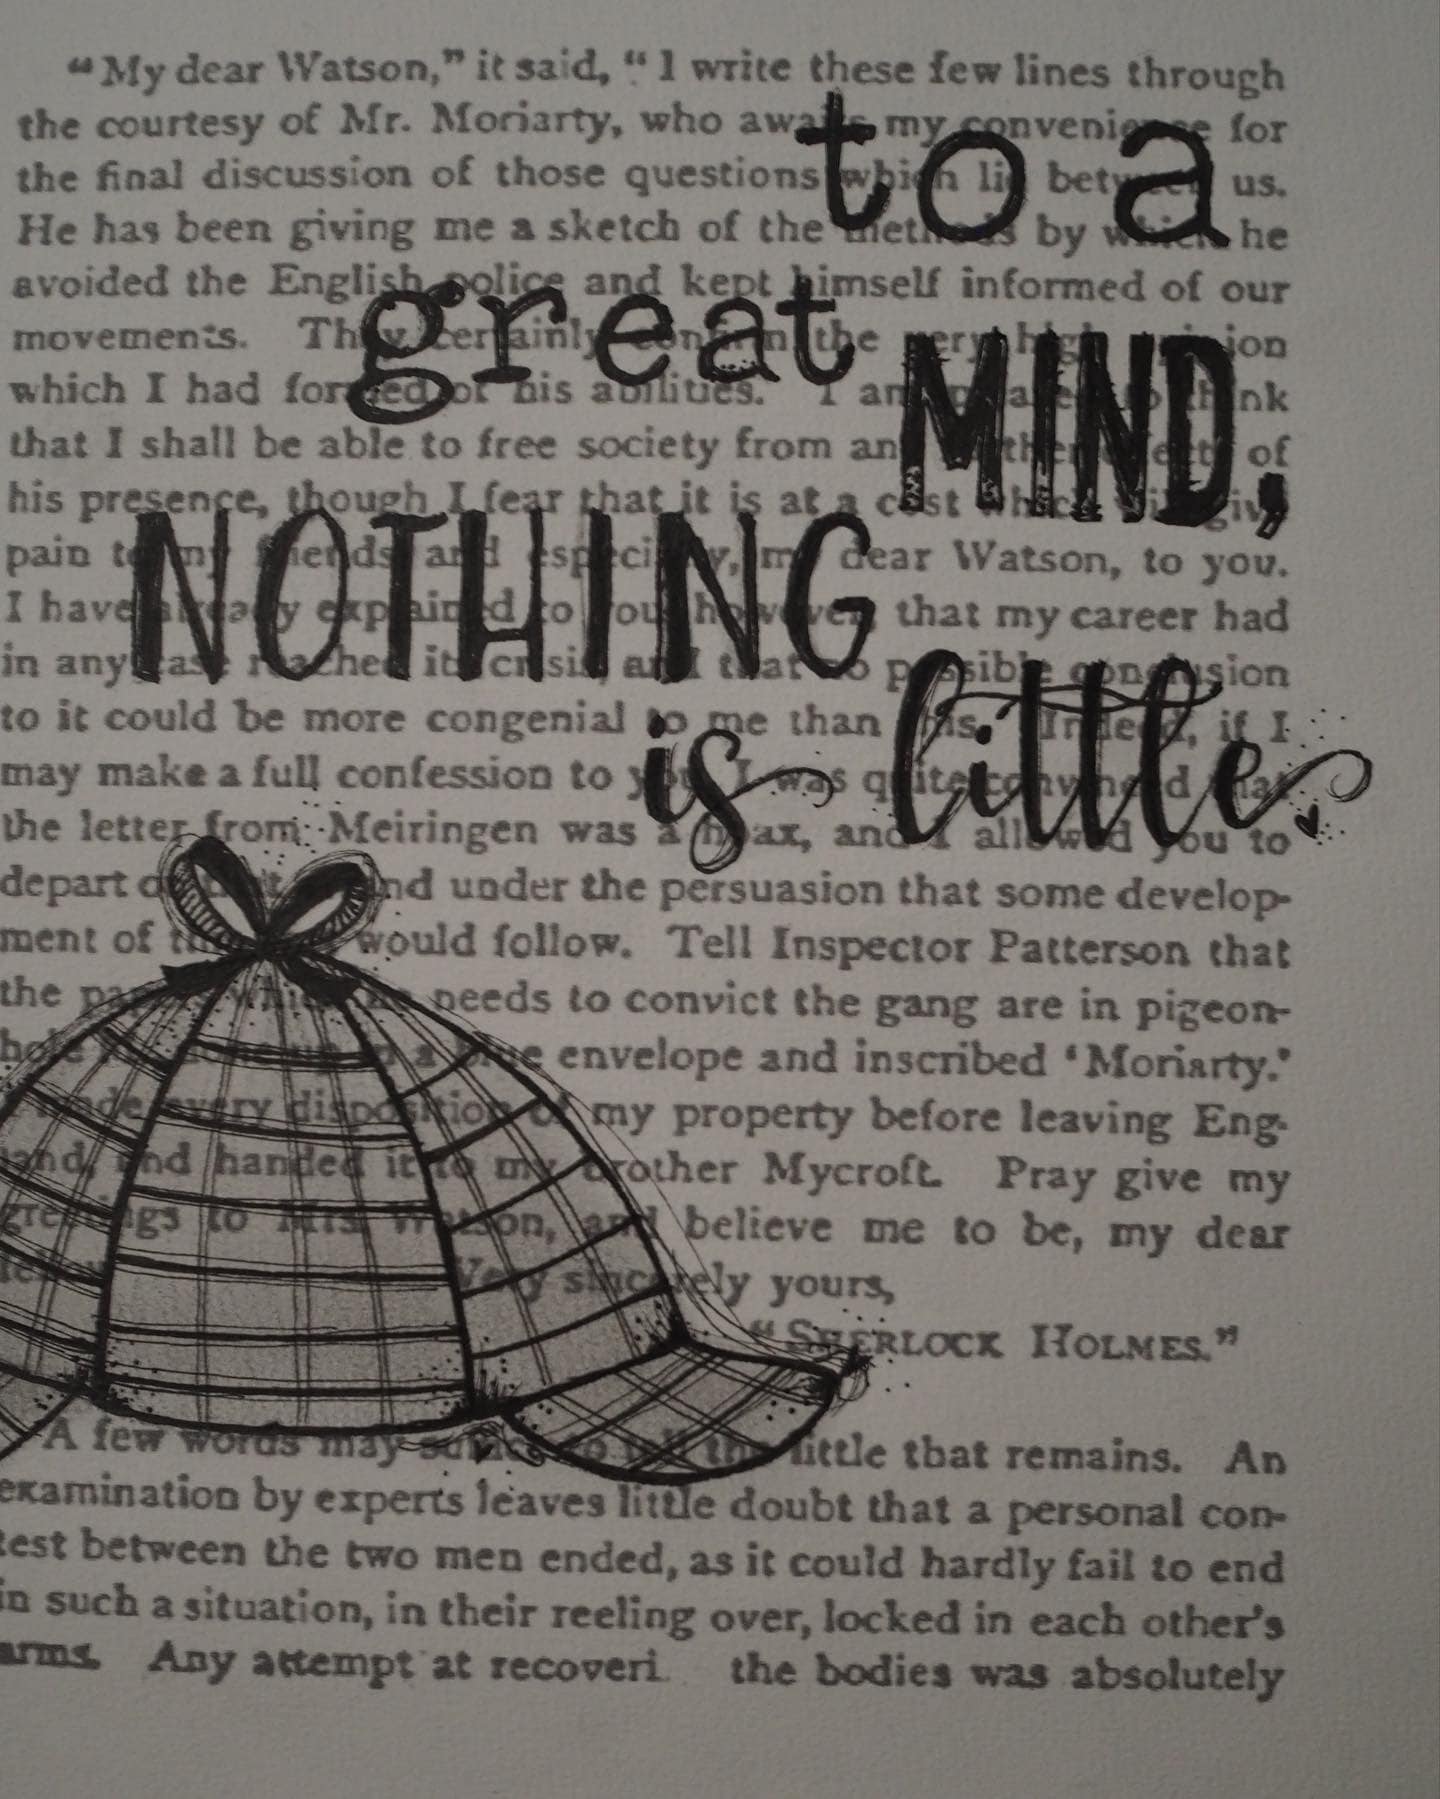 to a
great MIND,
NOTHING
is little
“My dear Watson,” it said, “I write these few lines through
the courtesy of Mr. Moriarty, who awaits my convenience for
the final discussion of those questions which lie between us.
He has been giving me a sketch of the methods by which he
avoided the English police and kept himself informed of our
movements. They certainly confirm the very high opinion
which I had formed of his abilities. I am pleased to think
that I shall be able to free society from any further effects of
his presence, though I fear that it is at a cost which will give
pain to my friends, and especially, my dear Watson, to you.
I have already explained to you, however, that my career had
in any case reached its crisis, and that no possible conclusion
to it could be more congenial to me than this. Indeed, if I
may make a full confession to you, I was quite convinced that
the letter from Meiringen was a hoax, and I allowed you to
depart on that and under the persuasion that some develop-
ment of this would follow. Tell Inspector Patterson that
the papers which he needs to convict the gang are in pigeon-
hole a blue envelope and inscribed ‘Moriarty.’
made every disposition of my property before leaving Eng-
land, and handed it to my brother Mycroft. Pray give my
greetings to Mrs. Watson, and believe me to be, my dear
Very sincerely yours,
“SHERLOCK HOLMES.”
A few words may suffice to tell the little that remains. An
examination by experts leaves little doubt that a personal con-
test between the two men ended, as it could hardly fail to end
in such a situation, in their reeling over, locked in each other's
arms. Any attempt at recoveri the bodies was absolutely